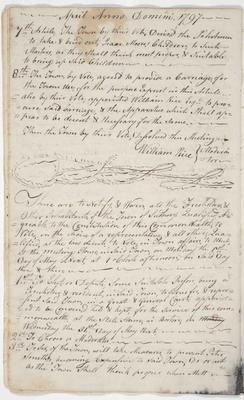 April Anno Domini 1797.
7th Article. The Town by their Vote, Directed the Selectmen
to take & bind out, Isaac Moors Children, to such
Masters, as they should think most proper & suitable
to bring up said Children
8th The Town by Vote, agreed to provide a Carriage for
the Town use, for the purpose express'd in this Article
also by their Vote appointed William Rice Esqr. to procure
said carriage & the apparatus which shall appear
to be decent & necessary for the same.
Then the Town by their Vote Dissolved this Meeting
William Rice Moderator
These are to Notify & Warn all the Freeholders &
Other Inhabitants of the Town of Sudbury Qualified
agreeable to the Constitution of this Commonwealth to
Vote, in the choice of representatives, & all others
qualified as the law directs to Vote in Town affairs, to meet
at the Meeting House in said Town on
Day of May at O'Clock afternoon on said Day
then & there
1st To Elect & Depute some Suitable Person being a
Freeholder & resident in said Town, to serve & represent
said Town, in a Great & General Court, appointed
to be convened & kept for the service of this Commonwealth
at the State House in Boston on
Wednesday the 31st Day of May next
2d To Choose a Moderator
3d To See if the Town will take Measures to prevent
in said Town, or act
as the Town shall think proper when Met